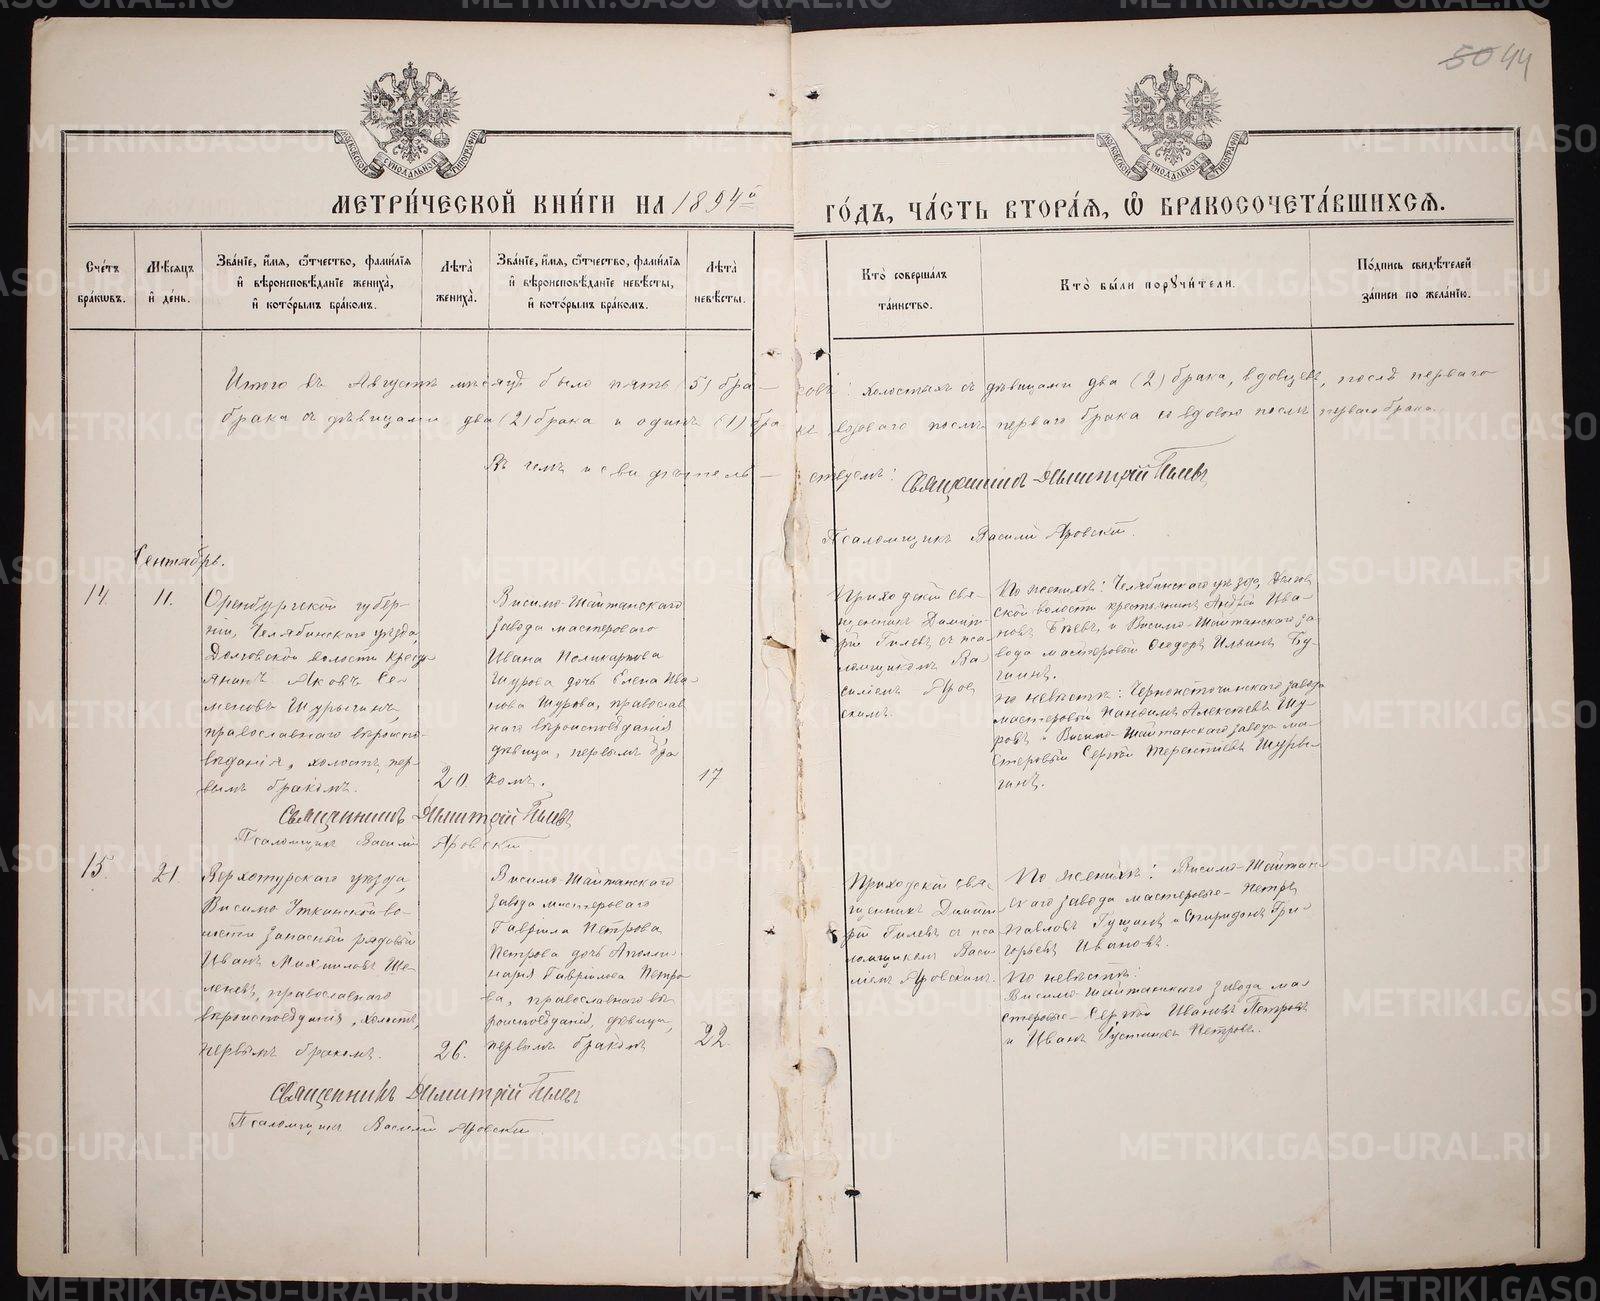 5044
МЕТРИ́ЧЕСКОЙ КНИ́ГИ НА 1894й
ГО́ДЪ, ЧА́СТЬ ВТОРА́Я, Ѡ БРАКОСОЧЕТА́ВШИХСЯ.
Сче́тъ бра́кѡвъ.
Мѣ́сяцъ и҆ де́нь.
Зва́нїе, и҆́мя, ѻ҆́тчество, фами́лїя
и҆ вѣроисповѣ́данїе жениха̀,
и҆ кото́рымъ бра́комъ.
Лѣ́та жениха̀.
Зва́нїе, и҆́мя, ѻ҆́тчество, фами́лїя
и҆ вѣроисповѣ́данїе невѣ́сты,
и҆ кото́рымъ бра́комъ.
Лѣ́та невѣ́сты.
Кто̀ соверша́лъ
та́инство.
Кто̀ бы́ли порꙋчи́тели.
По́дпись свидѣ́телей
за́писи по жела́нїю.
Итого въ Августѣ мѣсяцѣ было пять (5) бра- ковъ: холостыхъ съ дѣвицами два (2) брака, вдовцевъ, послѣ перваго
брака съ дѣвицами два (2) брака и одинъ (1) бра послѣ перваго брака со вдовою послѣ перваго брака.
Въ чемъ и свидѣтель- ствуемъ: Священникъ Димитрій Гилевъ
Псаломщикъ Василій Яровскій.
Сентябрь.
14.
11.
Оренбургской губер-
ніи, Челябинскаго уѣзда,
Долговской волости кресть-
янинъ Яковъ Се-
меновъ Шурыгинъ,
православнаго вѣроиспо-
вѣданія, холостъ, пер-
вымъ бракомъ.
20.
Висимо-Шайтанскаго
завода мастероваго
Ивана Поликарпова
Щурова дочь Елена Ива-
нова Щурова, православ-
наго вѣроисповѣданія
дѣвица, первымъ бра-
комъ.
17
Приходскій свя-
щенникъ Димит-
рій Гилевъ съ пса-
ломщикомъ Ва-
силіемъ Яров-
скимъ.
По женихѣ: Челябинскаго уѣзда,
ской волости крестьянинъ Андрей Ива-
новъ и Висимо-Шайтанскаго за-
вода мастеровой Ѳеодоръ Ильинъ
По невѣстѣ: Черноисточинскаго завода
мастеровой Алексѣевъ Щу-
ровъ и Висимо-Шайтанскаго завода ма-
стеровой Сергѣй Терентьевъ Шуры-
гинъ.
Священникъ Димитрій Гилевъ
Псаломщикъ Василій Яровскій
15.
21
Верхотурскаго уѣзда,
Висимо-Уткинской во-
лости запасный рядовый
Иванъ Михаиловъ Ше-
левъ, православнаго
вѣроисповѣданія, холостъ,
первымъ бракомъ.
26.
Висимо-Шайтанскаго
завода мастероваго
Гавріила Петрова
Петрова дочь Аполли-
нарія Гавріилова Петро-
ва, православнаго вѣ-
роисповѣданія, дѣвица,
первымъ бракомъ
22.
Приходскій свя-
щенникъ Димит-
рій Гилевъ съ пса-
ломщикомъ Васи-
ліемъ Яровскимъ.
По женихѣ: Висимо-Шайтан-
скаго завода мастеровые - Петръ
Павловъ Гущинъ и Спиридонъ Гри-
горьевъ Ивановъ.
По невѣстѣ:
Висимо-Шайтанскаго завода ма-
стеровые - Сергѣй Ивановъ Петровъ
и Иванъ Густиновъ Петровъ.
Священникъ Димитрій Гилевъ
Псаломщикъ Василій Яровскій.
METRIKI.GASO-URAL.RU